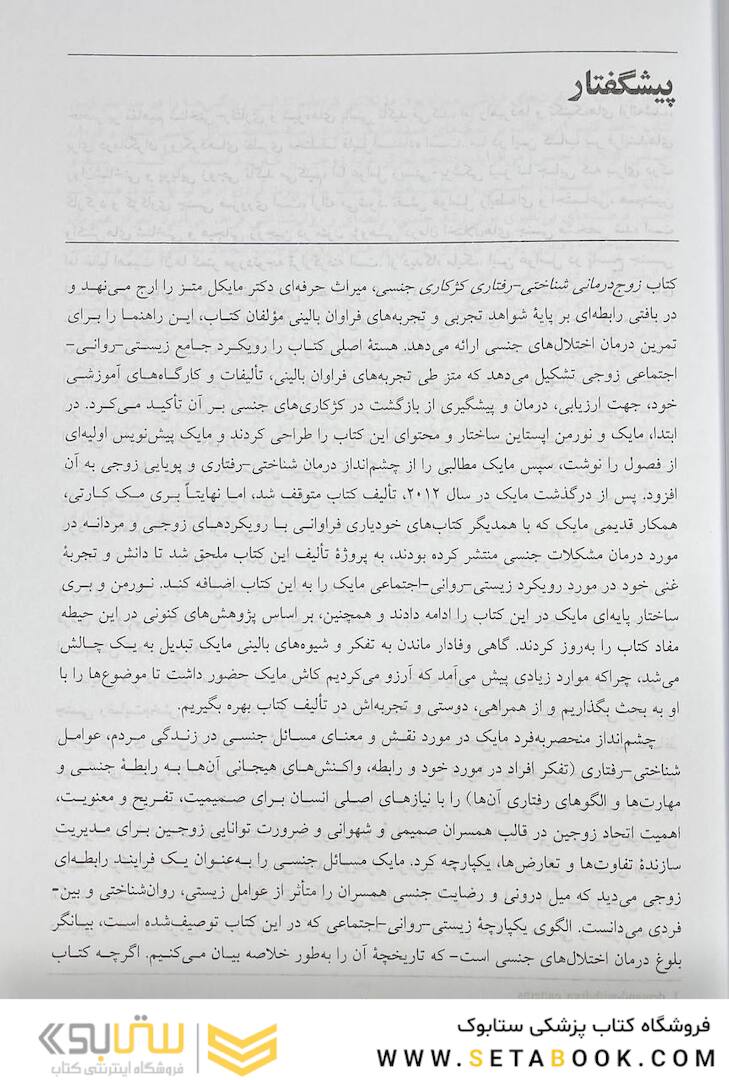 پیشگفتار
کتاب زوج‌درمانی شناختی-رفتاری کژکاری جنسی، میراث حرفه‌ای دکتر مایکل متز را ارج می‌نهد و
در بافتی رابطه‌ای بر پایهٔ شواهد تجربی و تجربه‌های فراوان بالینی مؤلفان کتاب، این راهنما را برای
تمرین درمان اختلال‌های جنسی ارائه می‌دهد. هستهٔ اصلی کتاب را رویکرد جامع زیستی-روانی-
اجتماعی زوجی تشکیل می‌دهد که متز طی تجربه‌های فراوان بالینی، تألیفات و کارگاه‌های آموزشی
خود، جهت ارزیابی، درمان و پیشگیری از بازگشت در کژکاری‌های جنسی بر آن تأکید می‌کرد. در
ابتدا، مایک و نورمن اپستاین ساختار و محتوای این کتاب را طراحی کردند و مایک پیش‌نویس اولیه‌ای
از فصول را نوشت، سپس مایک مطالبی را از چشم‌انداز درمان شناختی-رفتاری و پویایی زوجی به آن
افزود. پس از درگذشت مایک در سال ۲۰۱۲، تألیف کتاب متوقف شد، اما نهایتاً بری مک کارتی،
همکار قدیمی مایک که با همدیگر کتاب‌های خودیاری فراوانی با رویکردهای زوجی و مردانه در
مورد درمان مشکلات جنسی منتشر کرده بودند، به پروژهٔ تألیف این کتاب ملحق شد تا دانش و تجربهٔ
غنی خود در مورد رویکرد زیستی-روانی-اجتماعی مایک را به این کتاب اضافه کند. نورمن و بری
ساختار پایه‌ای مایک در این کتاب را ادامه دادند و همچنین، بر اساس پژوهش‌های کنونی در این حیطه
مفاد کتاب را به‌روز کردند. گاهی وفادار ماندن به تفکر و شیوه‌های بالینی مایک تبدیل به یک چالش
می‌شد، چراکه موارد زیادی پیش می‌آمد که آرزو می‌کردیم کاش مایک حضور داشت تا موضوع‌ها را با
او به بحث بگذاریم و از همراهی، دوستی و تجربه‌اش در تألیف کتاب بهره بگیریم.
چشم‌انداز منحصربه‌فرد مایک در مورد نقش و معنای مسائل جنسی در زندگی مردم، عوامل
شناختی-رفتاری (تفکر افراد در مورد خود و رابطه، واکنش‌های هیجانی آن‌ها به رابطهٔ جنسی و
مهارت‌ها و الگوهای رفتاری آن‌ها) را با نیازهای اصلی انسان برای صمیمیت، تفریح و معنویت،
اهمیت اتحاد زوجین در قالب همسران صمیمی و شهوانی و ضرورت توانایی زوجین برای مدیریت
سازندهٔ تفاوت‌ها و تعارض‌ها، یکپارچه کرد. مایک مسائل جنسی را به‌عنوان یک فرایند رابطه‌ای
زوجی می‌دید که میل درونی و رضایت جنسی همسران را متأثر از عوامل زیستی، روان‌شناختی و بین-
فردی می‌دانست. الگوی یکپارچهٔ زیستی-روانی-اجتماعی که در این کتاب توصیف‌شده است، بیانگر
بلوغ درمان اختلال‌های جنسی است- که تاریخچهٔ آن را به‌طور خلاصه بیان می‌کنیم. اگرچه کتاب
فروشگاه کتاب پزشکی ستابوک
WWW.SETABOOK.COM
ستابوک
فروشگاه اینترنتی کتاب